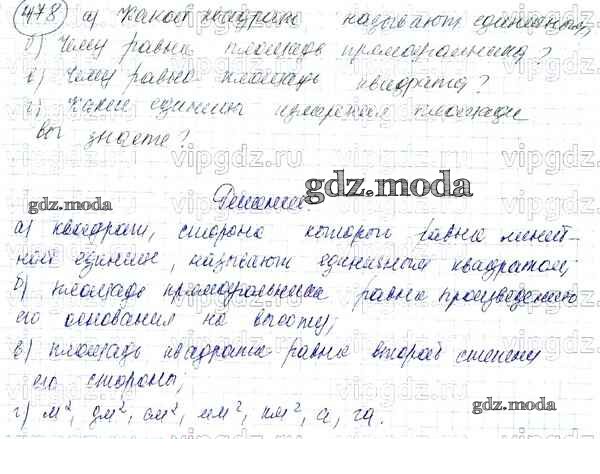 478 а) Какой квадрат называют единичным?
б) Чему равна площадь прямоугольника?
в) Чему равна площадь квадрата?
г) Какие единицы измерения площади
вы знаете?
Решение
gdz.moda
gdz.moda
а) квадрат, сторона которого равна линей-
ной единице, называют единичным квадратом;
б) площадь прямоугольника равна произведению
его основания на высоту;
в) площадь квадрата равна второй степени
его стороны;
г) м², дм², см², мм², км², а, га.
gdz.moda
vipgdz.ru